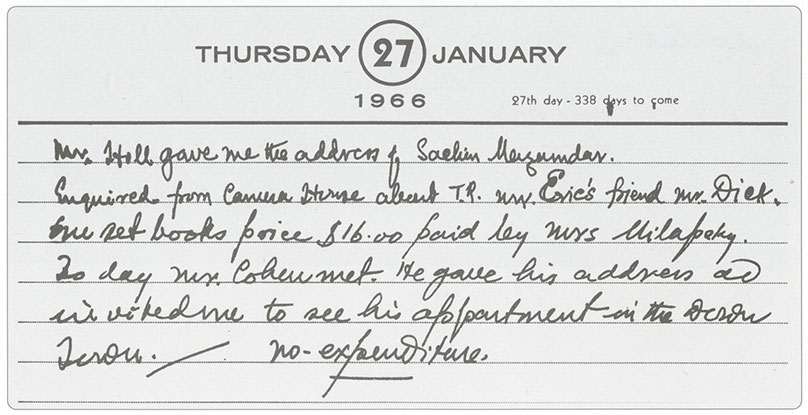 THURSDAY 27 JANUARY
1966
27th day - 338 days to come
Mr. Hall gave me the address of Sachin Mazumdar.
Enquired from Camera House about T.R. Mr. Eric's friend Mr. Dick.
One set books price $16.00 paid by Mrs Milapaky.
To day Mr. Cohen met. He gave his address ad
invited me to see his appartment in the Down
Town. no-expenditure.